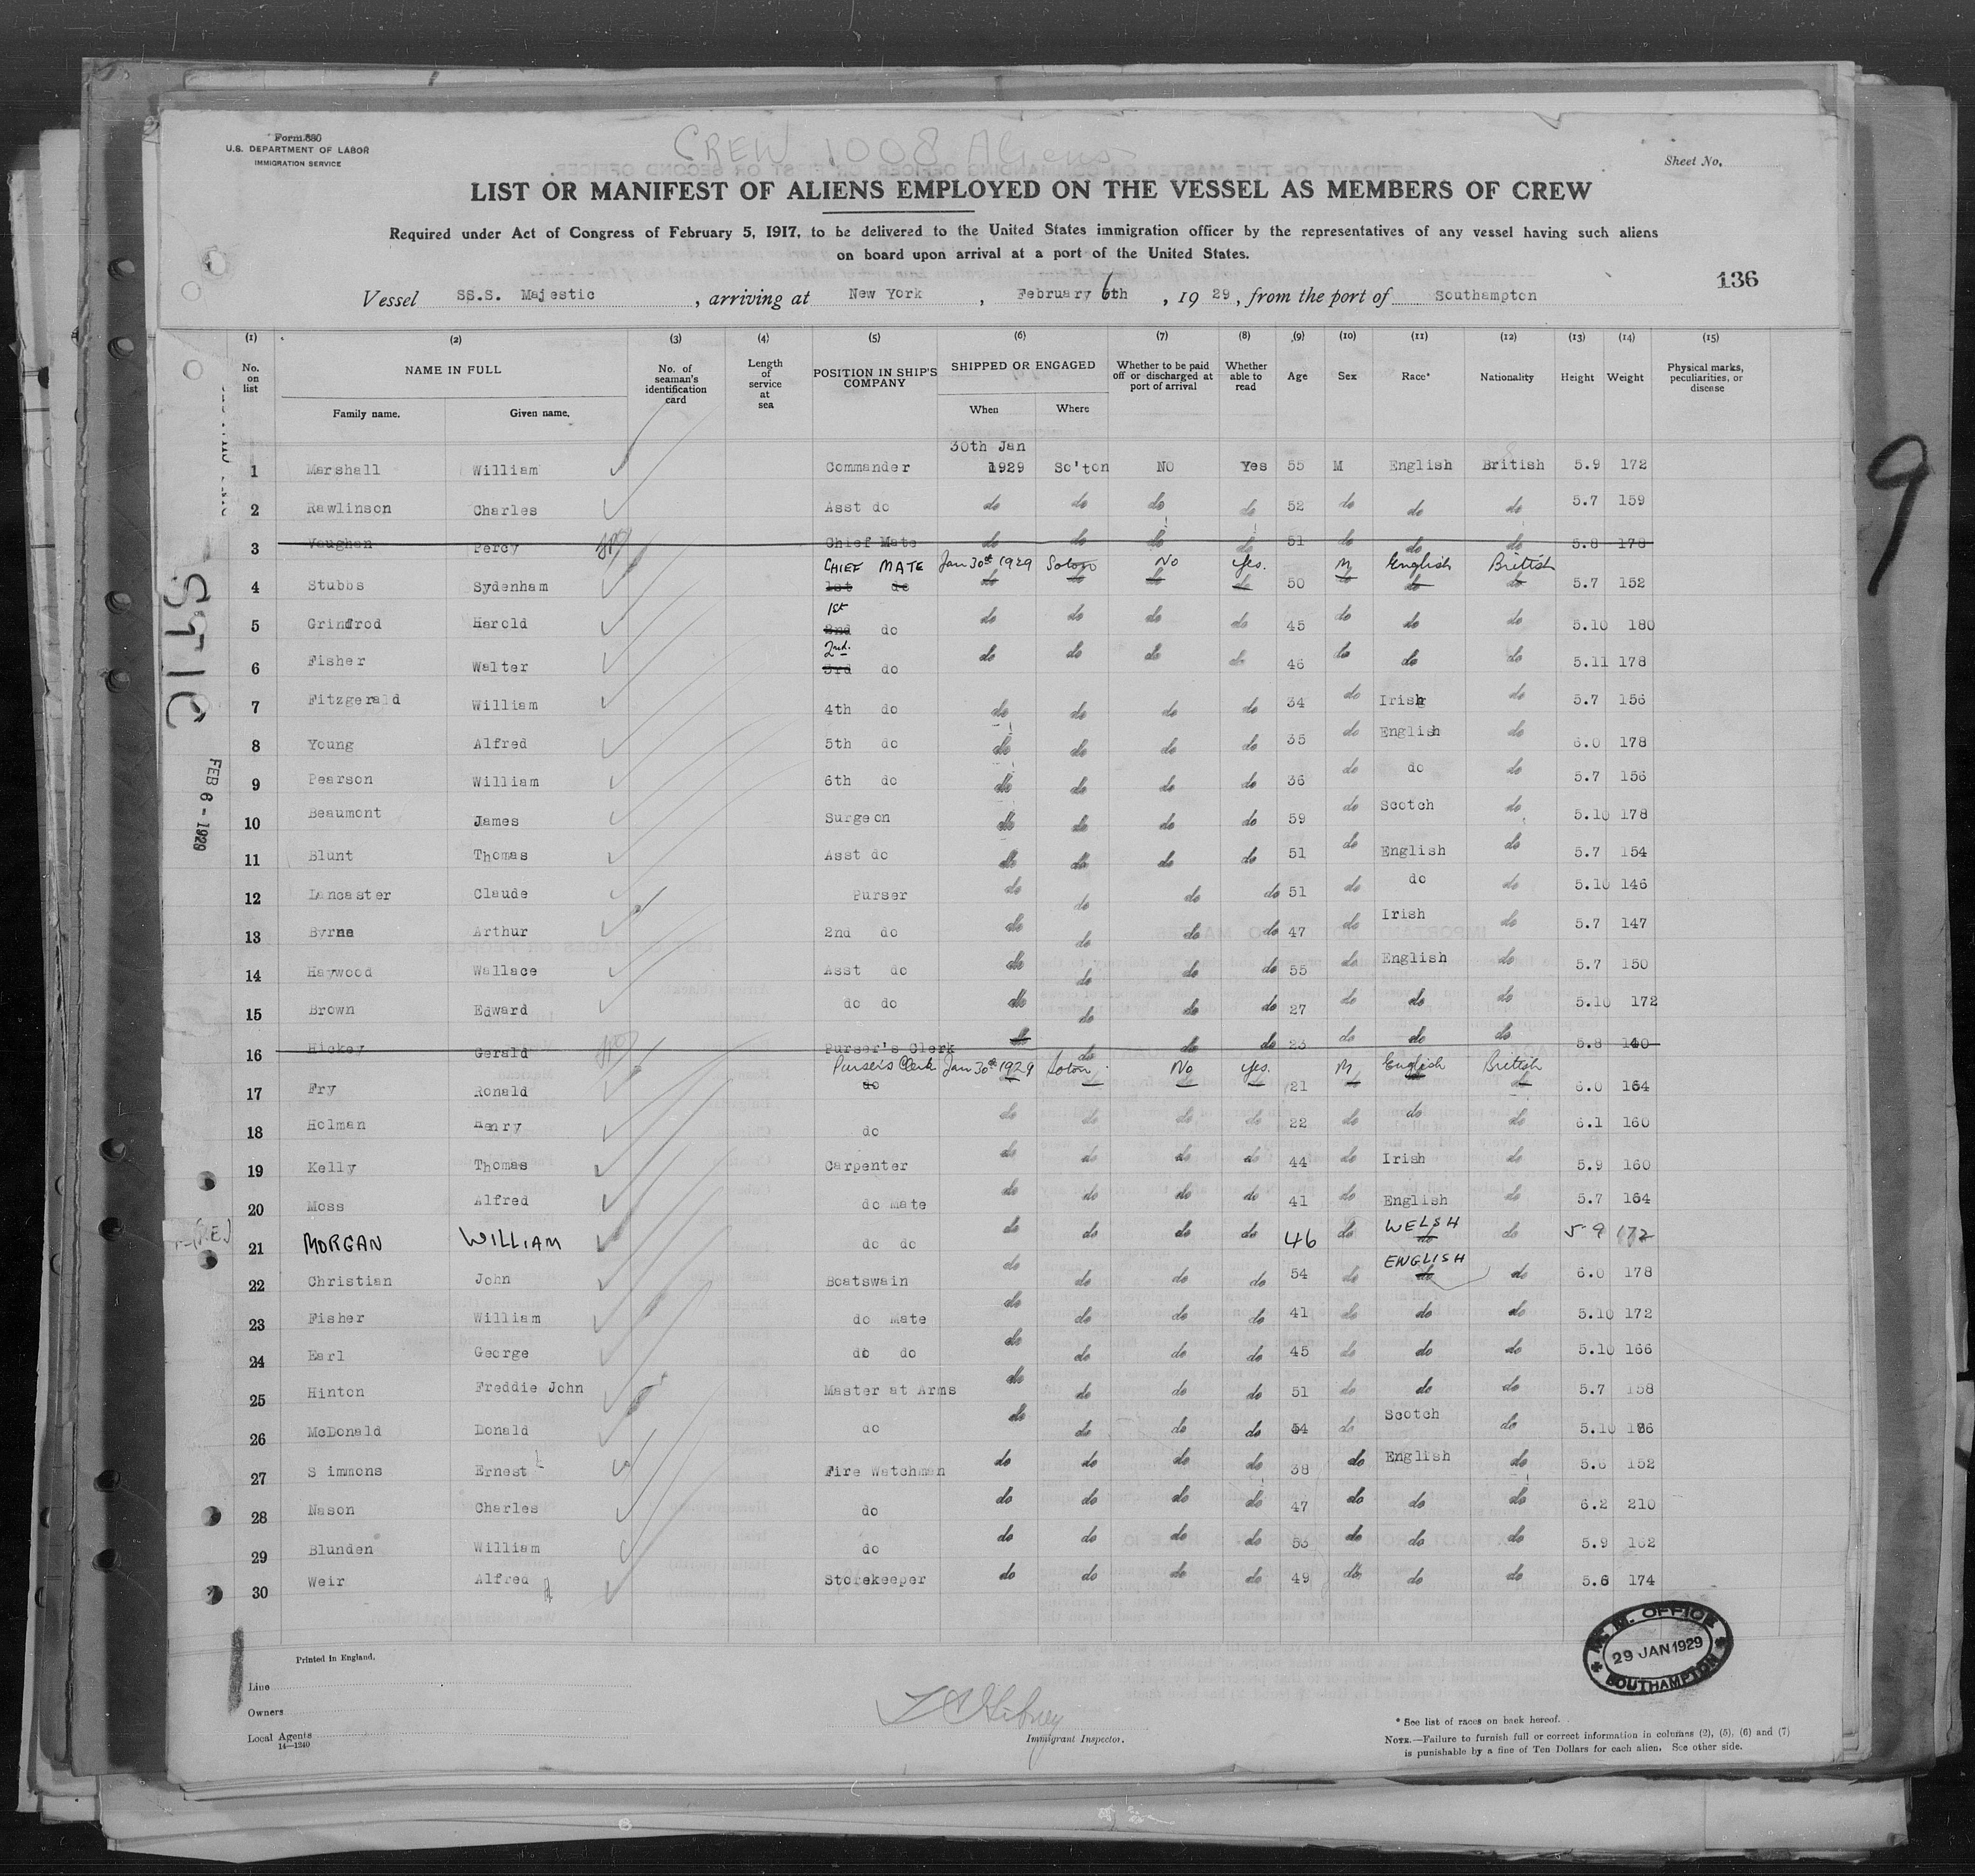 Form 680
U.S. DEPARTMENT OF LABOR
IMMIGRATION SERVICE
CREW 1008 Aliens
Sheet No.
LIST OR MANIFEST OF ALIENS EMPLOYED ON THE VESSEL AS MEMBERS OF CREW
Required under Act of Congress of February 5, 1917, to be delivered to the United States immigration officer by the representatives of any vessel having such aliens
on board upon arrival at a port of the United States.
136
Vessel SS.S. Majestic, arriving at New York, February 6th, 1929, from the port of Southampton
(1) (2) (3) (4) (5) (6) (7) (8) (9) (10) (11) (12) (13) (14) (15)
No. on list NAME IN FULL Family name. Given name. No. of seaman's identification card Length of service at sea POSITION IN SHIP'S COMPANY SHIPPED OR ENGAGED When Where Whether to be paid off or discharged at port of arrival Whether able to read Age Sex Race* Nationality Height Weight Physical marks, peculiarities, or disease
30th Jan
1 Marshall William Commander 1929 So'ton NO Yes 55 M English British 5.9 172
2 Rawlinson Charles Asst do do do do do 52 do do do 5.7 159
3 Vaughan Percy Chief Mate do do do do 51 do do do 5.8 178
CHIEF MATE Jan 30th 1929 Soton No yes. M English British
4 Stubbs Sydenham 1st do do do do do 50 do do do 5.7 152
1st
5 Grindrod Harold 2nd do do do do do 45 do do do 5.10 180
2nd.
6 Fisher Walter 3rd do do do do do 46 do do do 5.11 178
7 Fitzgerald William 4th do do do do do 34 do Irish do 5.7 156
8 Young Alfred 5th do do do do do 35 do English do 6.0 178
9 Pearson William 6th do do do do do 36 do do do 5.7 156
10 Beaumont James Surgeon do do do do 59 do Scotch do 5.10 178
11 Blunt Thomas Asst do do do do do 51 do English do 5.7 154
12 Lancaster Claude Purser do do do do 51 do do do 5.10 146
13 Byrne Arthur 2nd do do do do do 47 do Irish do 5.7 147
14 Haywood Wallace Asst do do do do do 55 do English do 5.7 150
15 Brown Edward do do do do do do 27 do do do 5.10 172
16 Hickey Gerald Purser's Clerk do do do do 23 do do do 5.8 140
Purser's Clerk Jan 30th 1929 Soton No yes. M English British
17 Fry Ronald do 21 6.0 164
18 Holman Henry do do do do do 22 do do do 6.1 160
19 Kelly Thomas Carpenter do do do do 44 do Irish do 5.9 160
20 Moss Alfred do Mate do do do do 41 do English do 5.7 164
21 MORGAN WILLIAM do do do do do do 46 do WELSH do do 5-9 172
ENGLISH
22 Christian John Boatswain do do do do 54 do do do 6.0 178
23 Fisher William do Mate do do do do 41 do do do 5.10 172
24 Earl George do do do do do do 45 do do do 5.10 166
25 Hinton Freddie John Master at Arms do do do do 51 do do do 5.7 158
26 McDonald Donald do do do do do 54 do Scotch do 5.10
27 Simmons Ernest Fire Watchman do do do do 38 do English do 152
28 Nason Charles do do do do do 47 do do do 6.2 210
29 Blunden William do do do do do 53 do do do 5.9 162
30 Weir Alfred Storekeeper do do do do 49 do do do 5.6 174
9
STIC
FEB 6 - 1929
M. M. OFFICE
29 JAN 1929
SOUTHAMPTON
Printed in England.
Line
Owners
Local Agents
14—1240
Immigrant Inspector.
* See list of races on back hereof.
NOTE.—Failure to furnish full or correct information in columns (2), (5), (6) and (7)
is punishable by a fine of Ten Dollars for each alien. See other side.